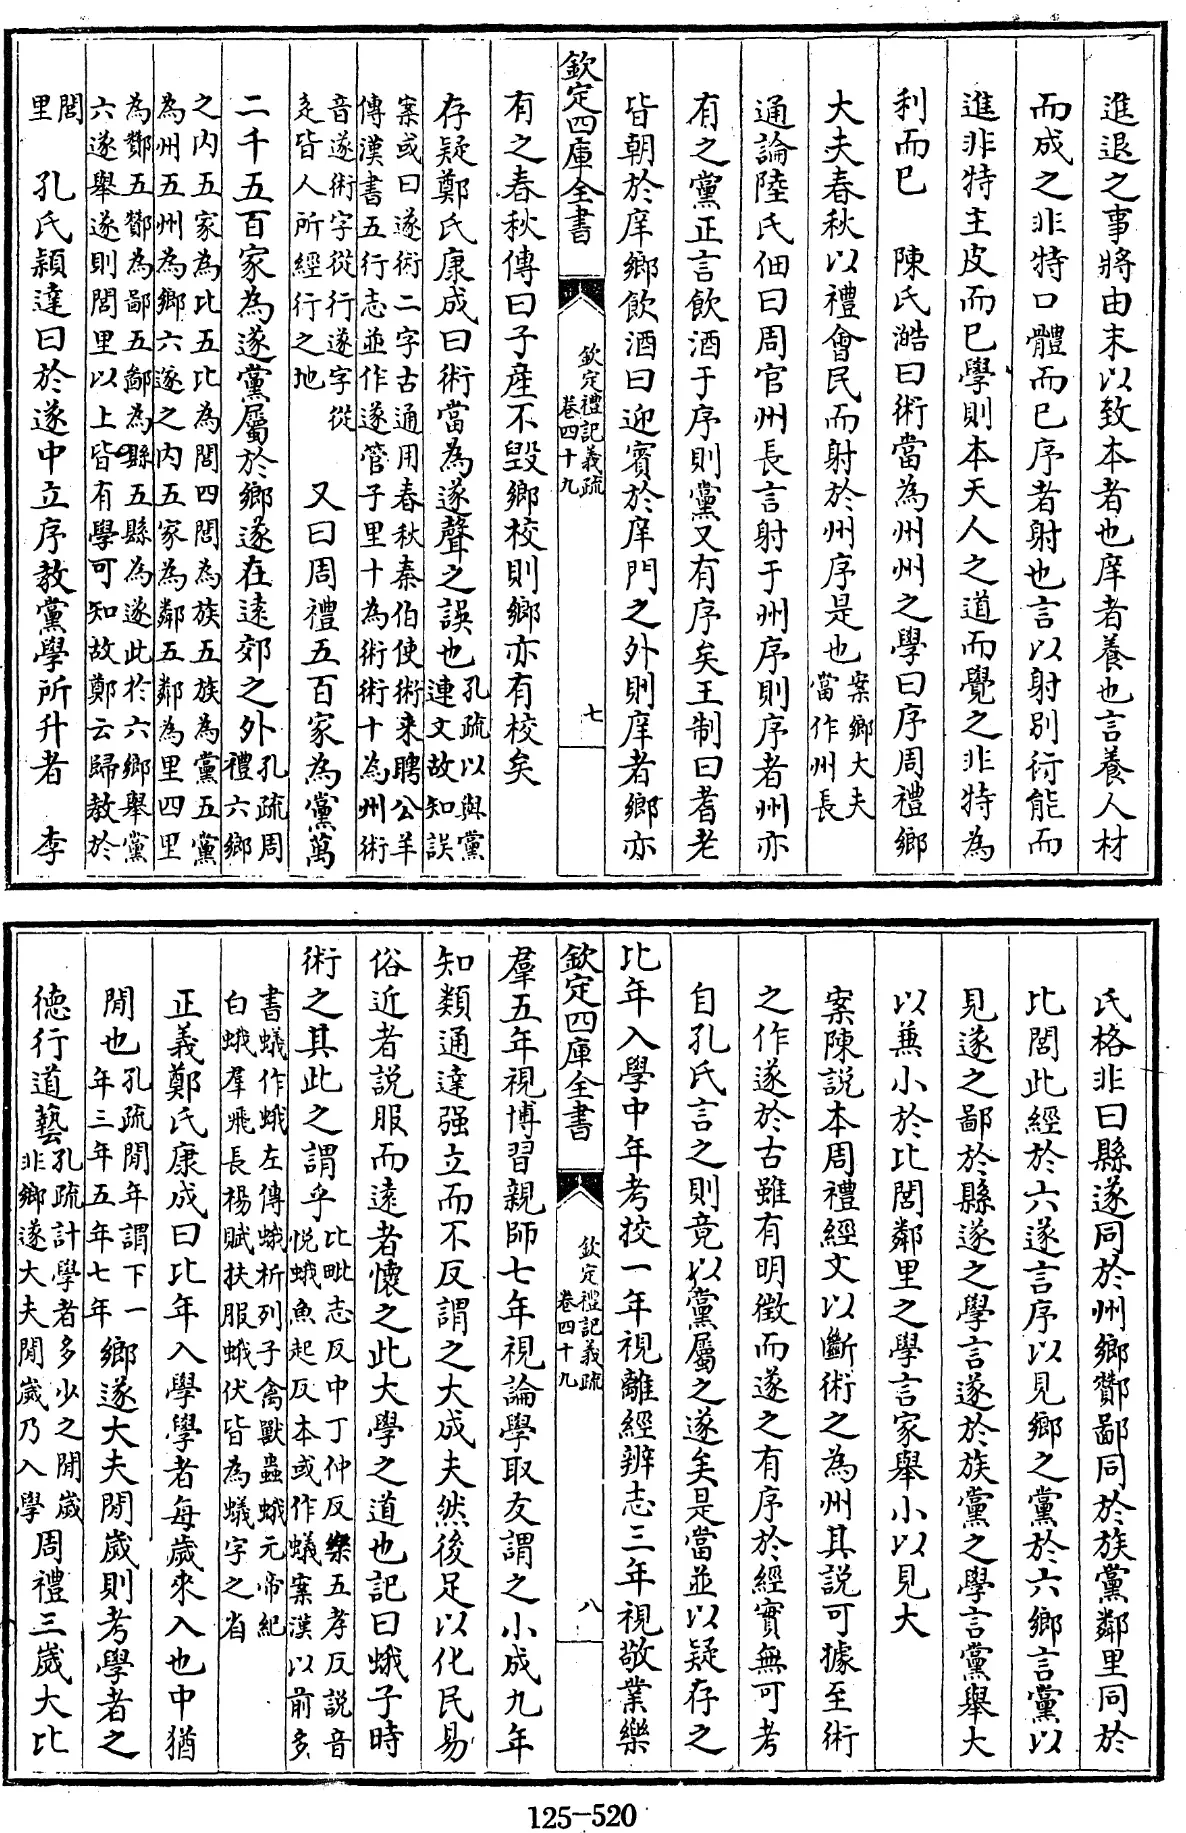 進退之事將由末以致本者也庠者養也言養人材
而成之非特口體而已序者射也言以射別衍能而
進非特主皮而已學則本天人之道而覺之非特為
利而已　陳氏澔曰術當為州州之學曰序周禮鄉
大夫春秋以禮會民而射於州序是也案鄉大夫當作州長
通論陸氏佃曰周官州長言射于州序則序者州亦
有之黨正言飲酒于序則黨又有序矣王制曰耆老
皆朝於庠鄉飲酒曰迎賓於庠門之外則庠者鄉亦
欽定四庫全書
欽定禮記義疏
卷四十九
七
有之春秋傳曰子產不毀鄉校則鄉亦有校矣
存疑鄭氏康成曰術當為遂聲之誤也孔疏以與黨連文故知誤
案或曰遂術二字古通用春秋秦伯使術來聘公羊
傳漢書五行志並作遂管子里十為術術十為州術
音遂術字從行遂字從
辵皆人所經行之地
又曰周禮五百家為黨萬
二千五百家為遂黨屬於鄉遂在遠郊之外孔疏周禮六鄉
之內五家為比五比為閭四閭為族五族為黨五黨
為州五州為鄉六遂之內五家為鄰五鄰為里四里
為酇五酇為鄙五鄙為縣五縣為遂此於六鄉舉黨
六遂舉遂則閭里以上皆有學可知故鄭云歸教於
閭里　孔氏穎達曰於遂中立序教黨學所升者　李
氏格非曰縣遂同於州鄉酇鄙同於族黨鄰里同於
比閭此經於六遂言序以見鄉之黨於六鄉言黨以
見遂之鄙於縣遂之學言遂於族黨之學言黨舉大
以兼小於比閭鄰里之學言家舉小以見大
案陳說本周禮經文以斷術之為州其說可據至術
之作遂於古雖有明徵而遂之有序於經實無可考
自孔氏言之則竟以黨屬之遂矣是當並以疑存之
比年入學中年考校一年視離經辨志三年視敬業樂
欽定四庫全書
欽定禮記義疏
卷四十九
八
羣五年視博習親師七年視論學取友謂之小成九年
知類通達强立而不反謂之大成夫然後足以化民易
俗近者說服而遠者懷之此大學之道也記曰蛾子時
術之其此之謂乎比毗志反中丁仲反樂五孝反說音
悅蛾魚起反本或作蟻案漢以前多
書蟻作蛾左傳蛾析列子禽獸蟲蛾元帝紀
白蛾羣飛長楊賦扶服蛾伏皆為蟻字之省
正義鄭氏康成曰比年入學學者每歲來入也中猶
閒也孔疏閒年謂下一年三年五年七年鄉遂大夫閒歲則考學者之
德行道藝孔疏計學者多少之閒歲非鄉遂大夫閒歲乃入學周禮三歲大比
125-520